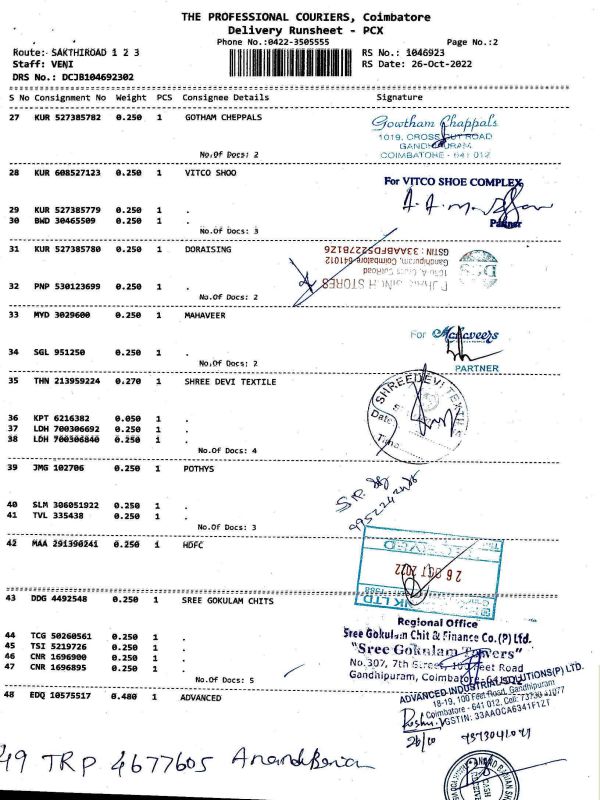 THE PROFESSIONAL COURIERS, Coimbatore
Delivery Runsheet - PCX
Phone No.:0422-3505555
Page No.:2
Route: SAKTHIROAD 1 2 3
RS No.: 1046923
Staff: VENI
RS Date: 26-Oct-2022
DRS No.: DCJB104692302
S No Consignment No Weight PCS Consignee Details Signature
27 KUR 527385782 0.250 1 GOTHAM CHEPPALS
Gowtham Chappals
1019, CROSS CUT ROAD
GANDHIPURAM
COIMBATORE - 641 012
No.Of Docs: 2
28 KUR 608527123 0.250 1 VITCO SHOO
For VITCO SHOE COMPLEX
29 KUR 527385779 0.250 1 .
30 BWD 30465509 0.250 1 .
Partner
No.Of Docs: 3
31 KUR 527385780 0.250 1 DORAISING
GSTIN : 33AABFD5227B1Z6
Gandhipuram, Coimbatore 641012
SINGH STORES
32 PNP 530123699 0.250 1 .
No.Of Docs: 2
33 MYD 3029600 0.250 1 MAHAVEER
For Mahaveers
34 SGL 951250 0.250 1 .
No.Of Docs: 2
PARTNER
35 THN 213959224 0.270 1 SHREE DEVI TEXTILE
SHREEDEVI TEXTILE
Date
Time
36 KPT 6216382 0.050 1 .
37 LDH 700306692 0.250 1 .
38 LDH 700306840 0.250 1 .
No.Of Docs: 4
39 JMG 102706 0.250 1 POTHYS
40 SLM 306051922 0.250 1 .
41 TVL 335438 0.250 1 .
No.Of Docs: 3
42 MAA 291390241 0.250 1 HDFC
RECEIVED
26 OCT 2022
43 DDG 4492548 0.250 1 SREE GOKULAM CHITS
Regional Office
Sree Gokulam Chit & Finance Co.(P) Ltd.
"Sree Gokulam Towers"
No.307, 7th Street, 100 Feet Road
Gandhipuram, Coimbatore-641 012
44 TCG 50260561 0.250 1 .
45 TSI 5219726 0.250 1 .
46 CNR 1696900 0.250 1 .
47 CNR 1696895 0.250 1 .
No.Of Docs: 5
48 EDQ 10575517 0.480 1 ADVANCED
ADVANCED INDUSTRIAL SOLUTIONS(P) LTD.
18-19, 100 Feet Road, Gandhipuram
Coimbatore - 641 012, Cell:
GSTIN: 33AAOCA6341F1ZT
26/10
49 TRP 4677605